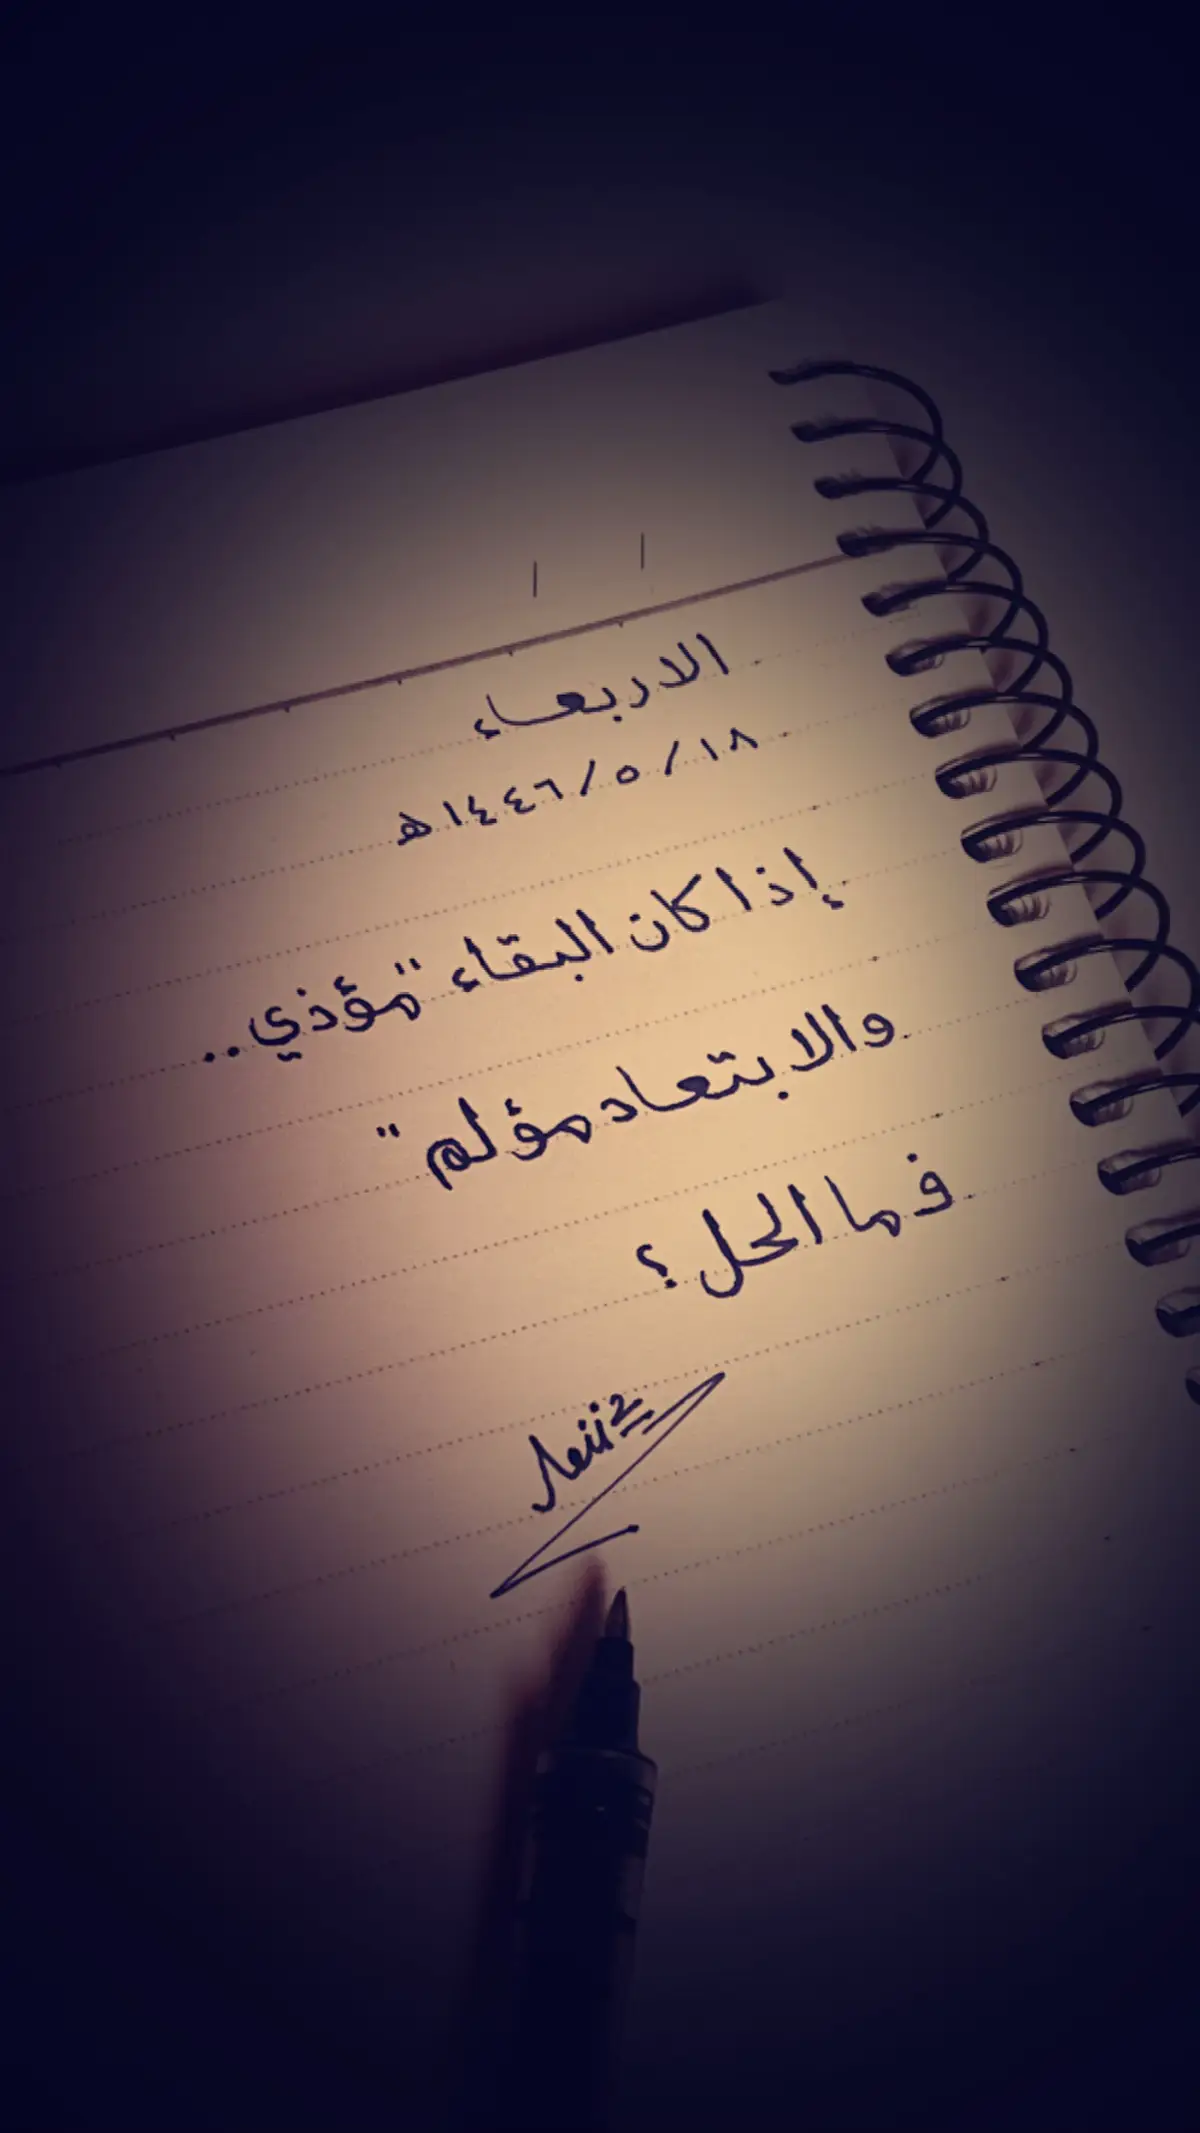 الاربعاء
١٨ / ٥ / ١٤٤٦ هـ
إذا كان البقاء "مؤذي..
والابتعاد مؤلم"
فما الحل ؟